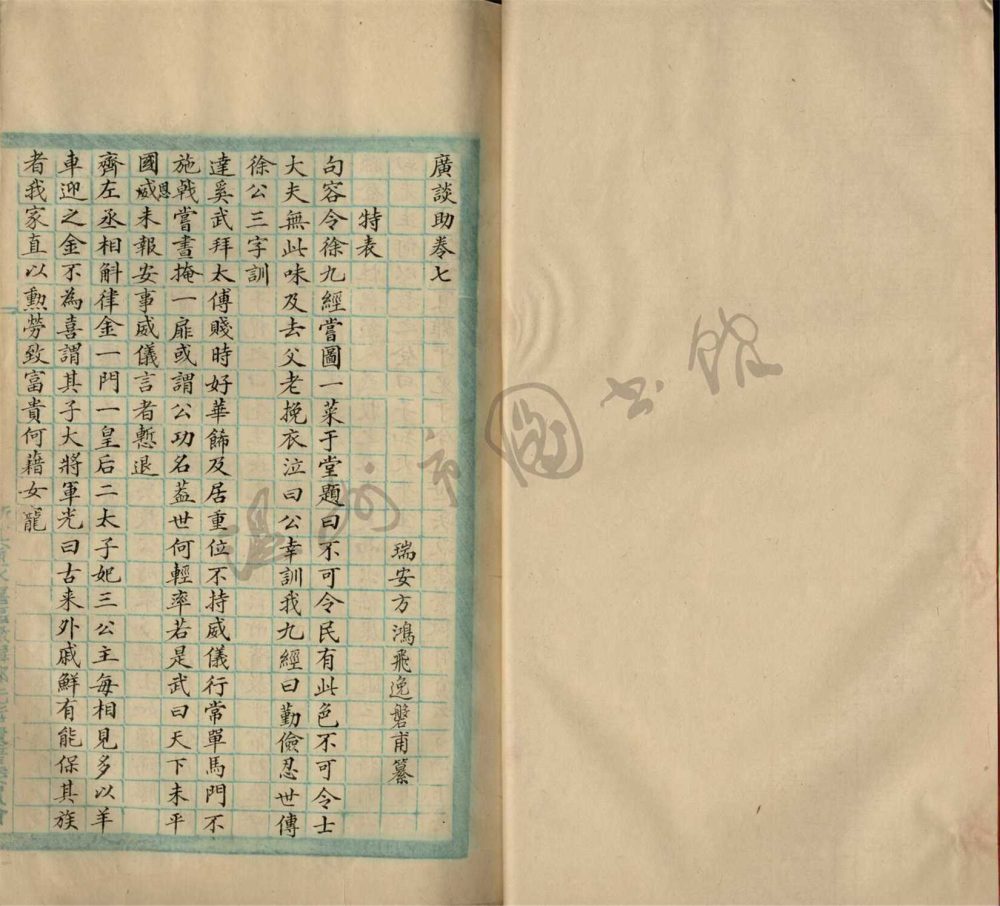 廣談助卷七
瑞安方鴻飛逸磐甫纂
特表
句容令徐九經嘗圖一菜于堂題曰不可令民有此色不可令士
大夫無此味及去父老挽衣泣曰公幸訓我九經曰勤儉忍世傳
徐公三字訓
達奚武拜太傅賤時好華飾及居重位不持威儀行常單馬門不
施戟嘗晝掩一扉或謂公功名蓋世何輕率若是武曰天下未平
國恩未報安事威儀言者慙退
齊左丞相斛律金一門一皇后二太子妃三公主每相見多以羊
車迎之金不為喜謂其子大將軍光曰古来外戚鮮有能保其族
者我家直以勲勞致富貴何藉女寵
温州市圖书館